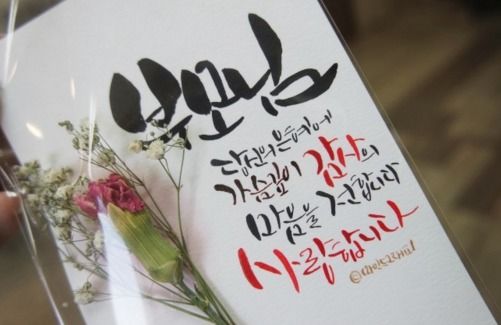 부모님
당신의 은혜에
가슴깊이 감사의
마음을 전합니다
사랑합니다